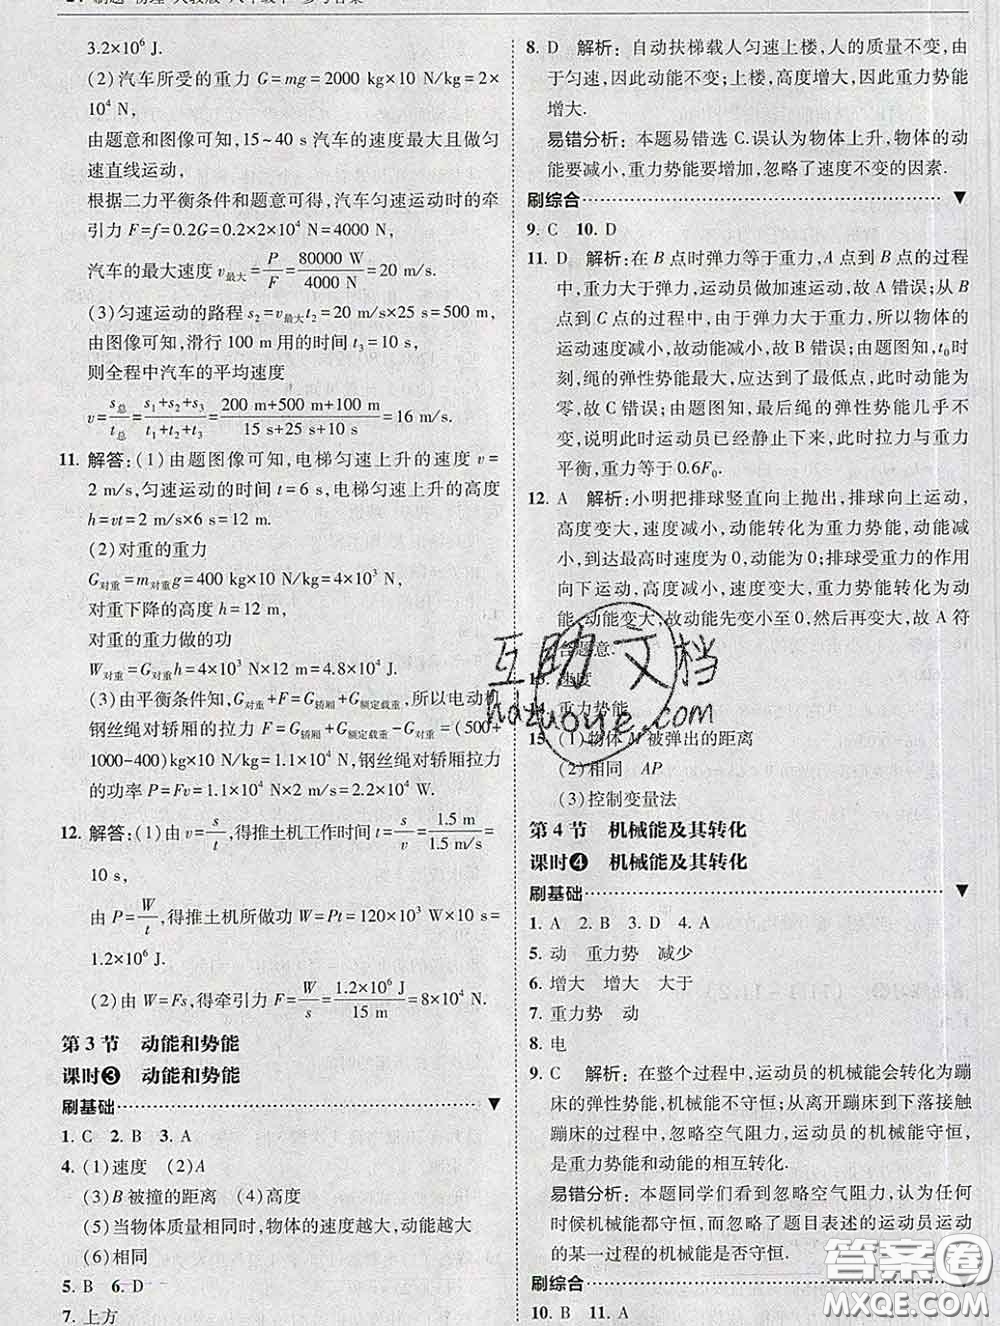 3.2×10⁶ J.
(2)汽车所受的重力 G=mg=2000 kg×10 N/kg=2×
10⁴ N,
由题意和图像可知,15~40 s 汽车的速度最大且做匀
速直线运动,
根据二力平衡条件和题意可得,汽车匀速运动时的牵
引力 F=f=0.2G=0.2×2×10⁴ N=4000 N,
汽车的最大速度 v最大=P/F=80000 W/4000 N=20 m/s.
(3)匀速运动的路程 s₂=v最大t₂=20 m/s×25 s=500 m,
由图像可知,滑行 100 m 用的时间 t₃=10 s,
则全程中汽车的平均速度
v=s总/t总=(s₁+s₂+s₃)/(t₁+t₂+t₃)=(200 m+500 m+100 m)/(15 s+25 s+10 s)=16 m/s.
11. 解答:(1)由题图像可知,电梯匀速上升的速度 v=
2 m/s,匀速运动的时间 t=6 s,电梯匀速上升的高度
h=vt=2 m/s×6 s=12 m.
(2)对重的重力
G对重=m对重g=400 kg×10 N/kg=4×10³ N,
对重下降的高度 h=12 m,
对重的重力做的功
W对重=G对重h=4×10³ N×12 m=4.8×10⁴ J.
(3)由平衡条件知,G对重+F=G轿厢+G额定载重,所以电动机
钢丝绳对轿厢的拉力 F=G轿厢+G额定载重-G对重=(500+
1000-400)kg×10 N/kg=1.1×10⁴ N,钢丝绳对轿厢拉力
的功率 P=Fv=1.1×10⁴ N×2 m/s=2.2×10⁴ W.
12. 解答:(1)由 v=s/t,得推土机工作时间 t=s/v=1.5 m/1.5 m/s=
10 s,
由 P=W/t,得推土机所做功 W=Pt=120×10³ W×10 s=
1.2×10⁶ J.
(2)由 W=Fs,得牵引力 F=W/s=1.2×10⁶ J/15 m=8×10⁴ N.
第 3 节 动能和势能
课时❸ 动能和势能
刷基础
1. C 2. B 3. A
4. (1)速度 (2)A
(3)B 被撞的距离 (4)高度
(5)当物体质量相同时,物体的速度越大,动能越大
(6)相同
5. B 6. D
7. 上方
8. D 解析:自动扶梯载人匀速上楼,人的质量不变,由
于匀速,因此动能不变;上楼,高度增大,因此重力势能
增大.
易错分析:本题易错选 C.误认为物体上升,物体的动
能要减小,重力势能要增加,忽略了速度不变的因素.
刷综合
9. C 10. D
11. D 解析:在 B 点时弹力等于重力,A 点到 B 点的过程
中,重力大于弹力,运动员做加速运动,故 A 错误;从 B
点到 C 点的过程中,由于弹力大于重力,所以物体的
运动速度减小,故动能减小,故 B 错误;由题图知,t₀时
刻,绳的弹性势能最大,应达到了最低点,此时动能为
零,故 C 错误;由题图知,最后绳的弹性势能几乎不
变,说明此时运动员已经静止下来,此时拉力与重力
平衡,重力等于 0.6F₀.
12. A 解析:小明把排球竖直向上抛出,排球向上运动,
高度变大,速度减小,动能转化为重力势能,动能减
小,到达最高时速度为 0,动能为 0;排球受重力的作用
向下运动,高度减小,速度变大,重力势能转化为动
能,动能变大,故动能先变小至 0,然后再变大,故 A 符
合题意.
13. 速度
重力势能
15. (1)物体 M 被弹出的距离
(2)相同 AP
(3)控制变量法
第 4 节 机械能及其转化
课时❹ 机械能及其转化
刷基础
1. A 2. B 3. D 4. A
5. 动 重力势 减少
6. 增大 增大 大于
7. 重力势 动
8. 电
9. C 解析:在整个过程中,运动员的机械能会转化为蹦
床的弹性势能,机械能不守恒;从离开蹦床到下落接触
蹦床的过程中,忽略空气阻力,运动员的机械能守恒,
是重力势能和动能的相互转化.
易错分析:本题同学们看到忽略空气阻力,认为任何
时候机械能都守恒,而忽略了题目表述的运动员运动
的某一过程的机械能是否守恒.
刷综合
10. B 11. A
互助文档
hdzuoye.com
答案圈
MXQE.COM